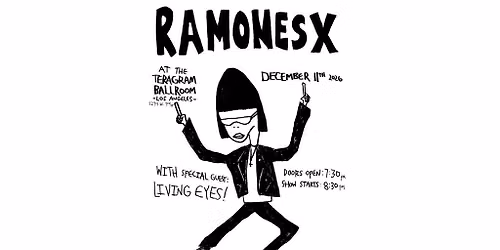 RAMONES X
AT THE
TERAGRAM
BALLROOM
-LOS ANGELES-
DECEMBER 11TH 2026
WITH SPECIAL GUEST:
LIVING EYES!
DOORS OPEN: 7:30PM
SHOW STARTS: 8:30PM